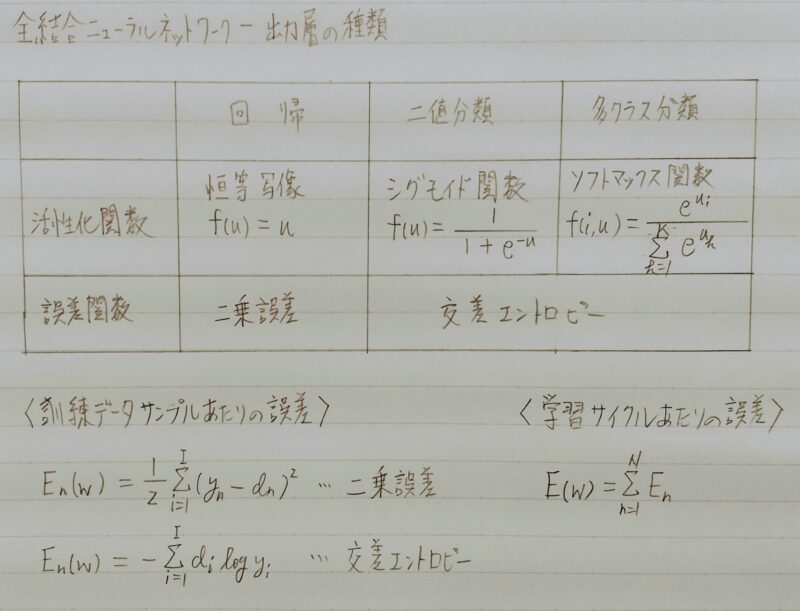 全結合ニューラルネットワーク － 出力層の種類
回 帰 二値分類 多クラス分類
活性化関数 恒等写像 シグモイド関数 ソフトマックス関数
f(u) = u f(u) = 1 / (1 + e^-u) f(i,u) = e^{u_i} / Σ_{k=1}^{K} e^{u_k}
誤差関数 二乗誤差 交差エントロピー
〈訓練データサンプルあたりの誤差〉 〈学習サイクルあたりの誤差〉
E_n(w) = 1/2 Σ_{i=1}^{I} (y_n − d_n)^2 … 二乗誤差 E(w) = Σ_{n=1}^{N} E_n
E_n(w) = − Σ_{i=1}^{I} d_i log y_i … 交差エントロピー